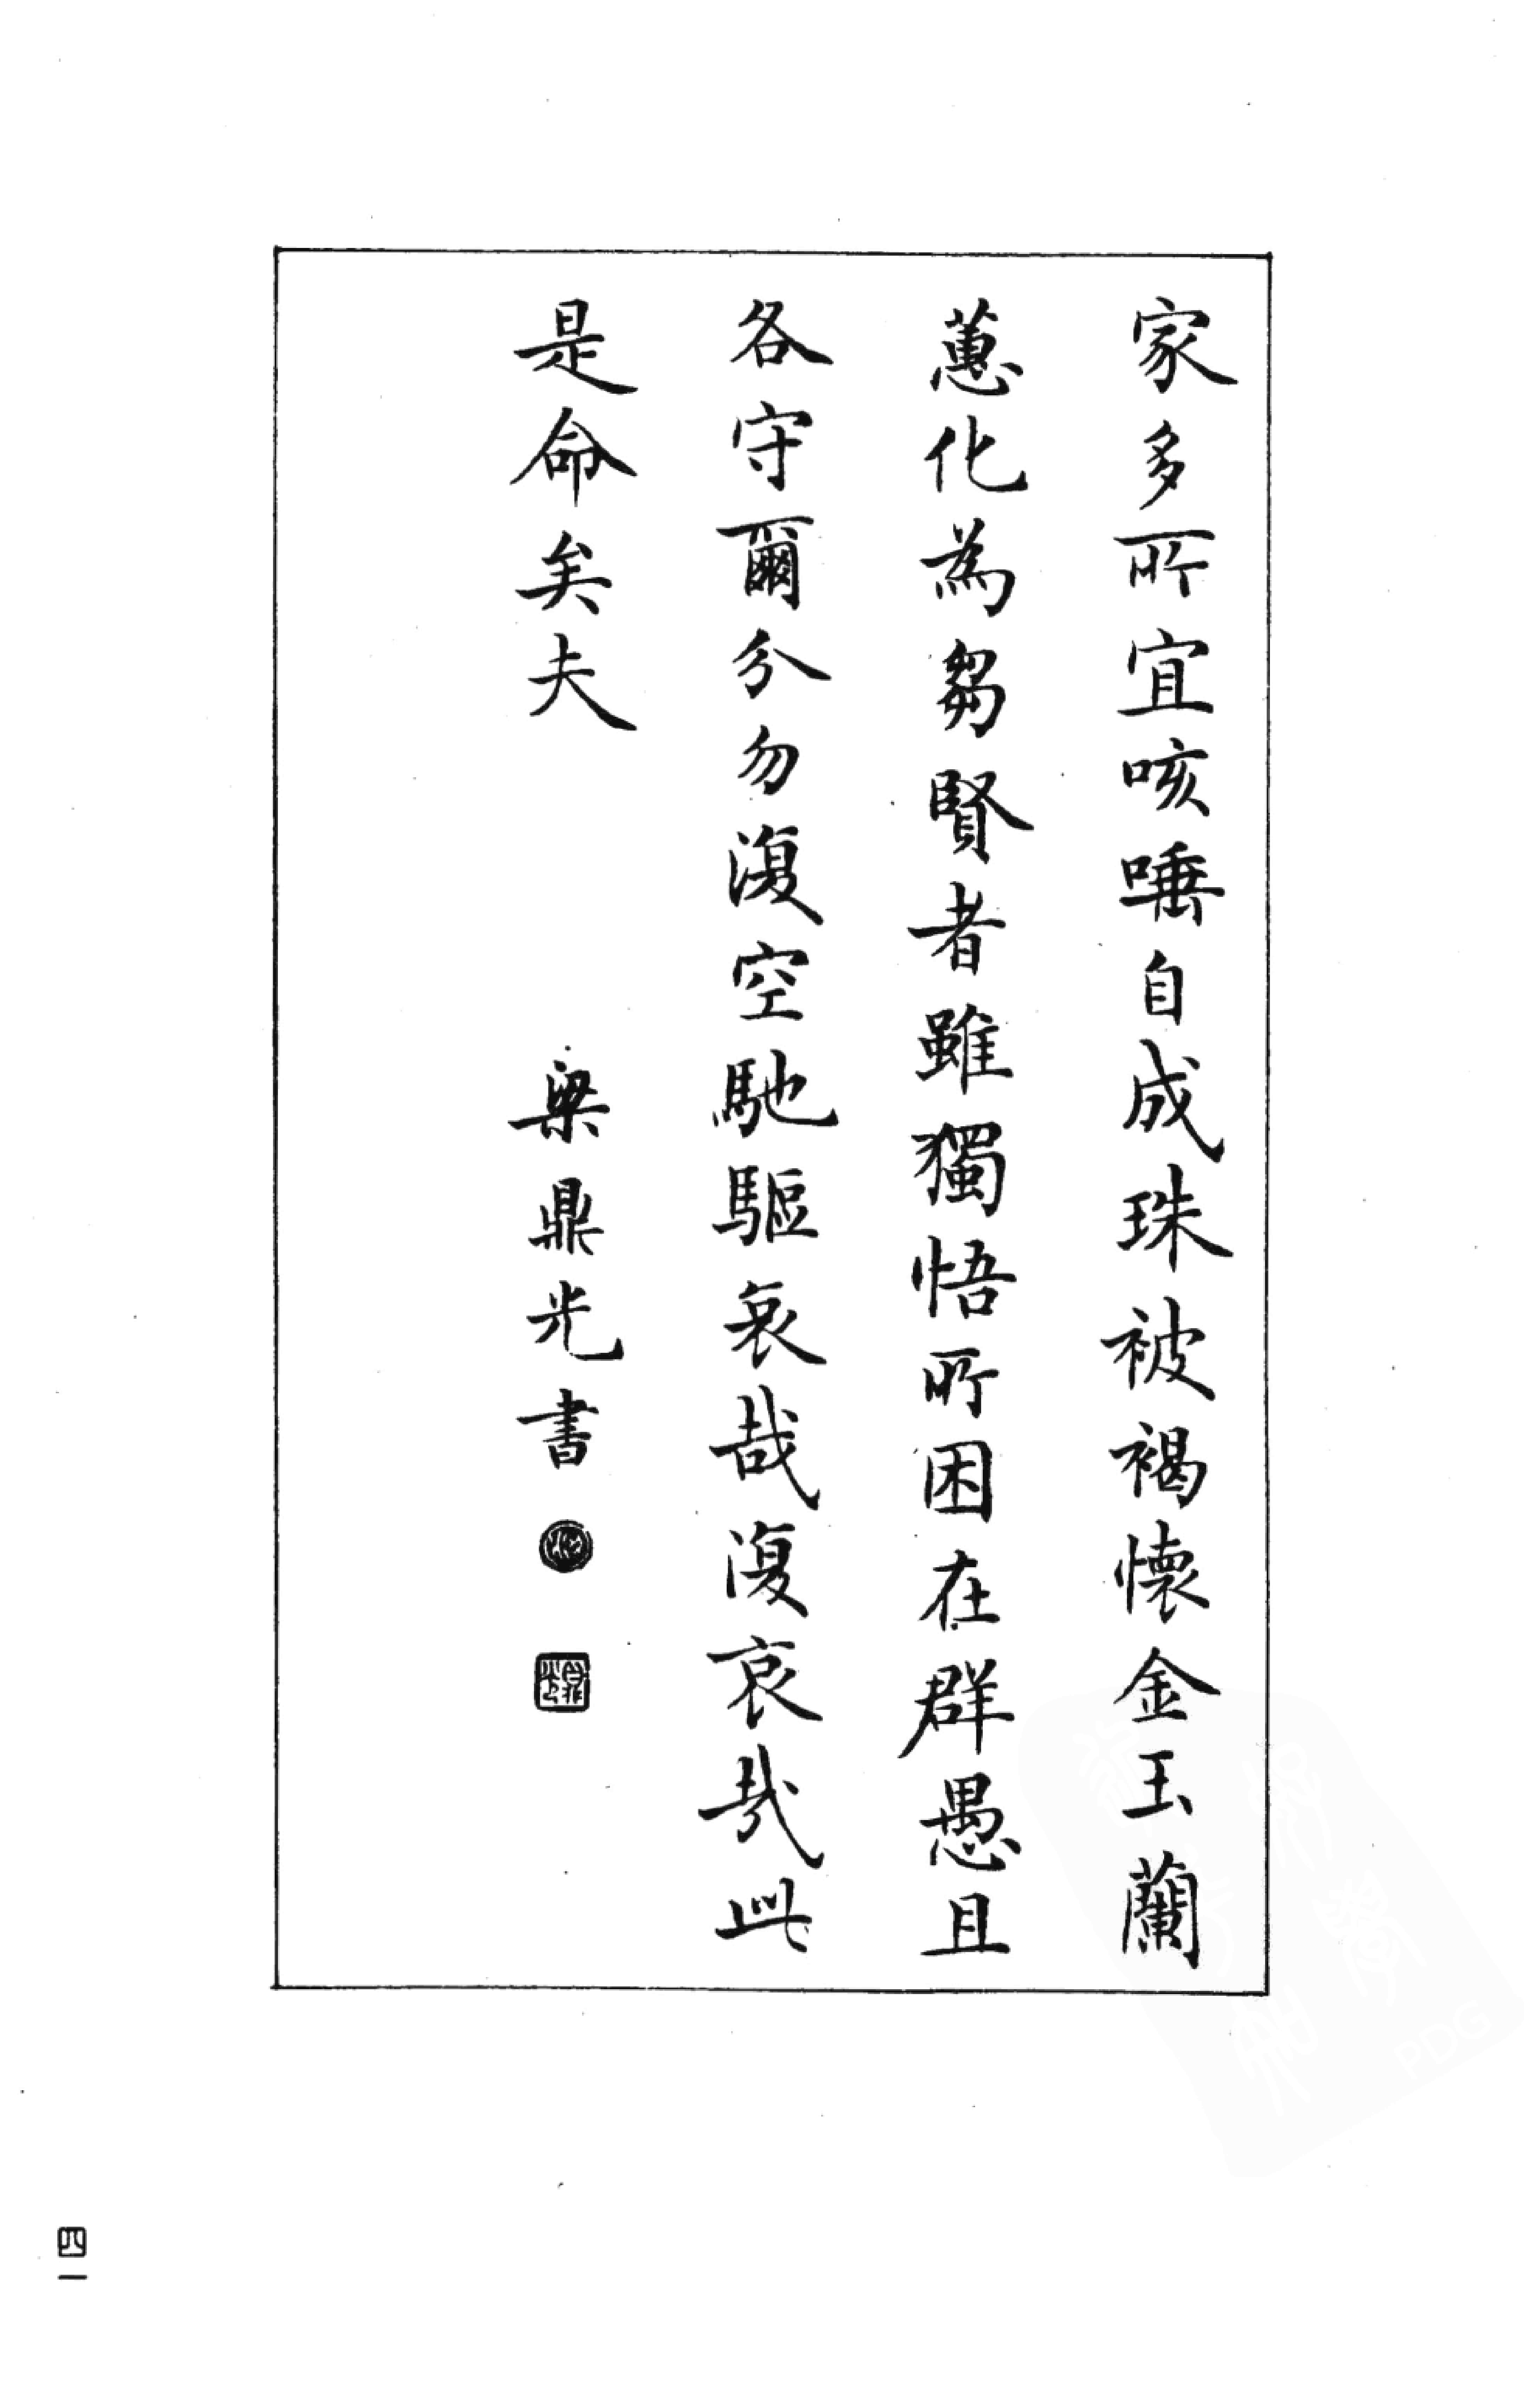 家多所宜咳唾自成珠被褐懷金玉蘭
蕙化為芻賢者雖獨悟所困在群愚且
各守爾分勿復空馳驅哀哉復哀哉此
是命矣夫
梁鼎光書
四一